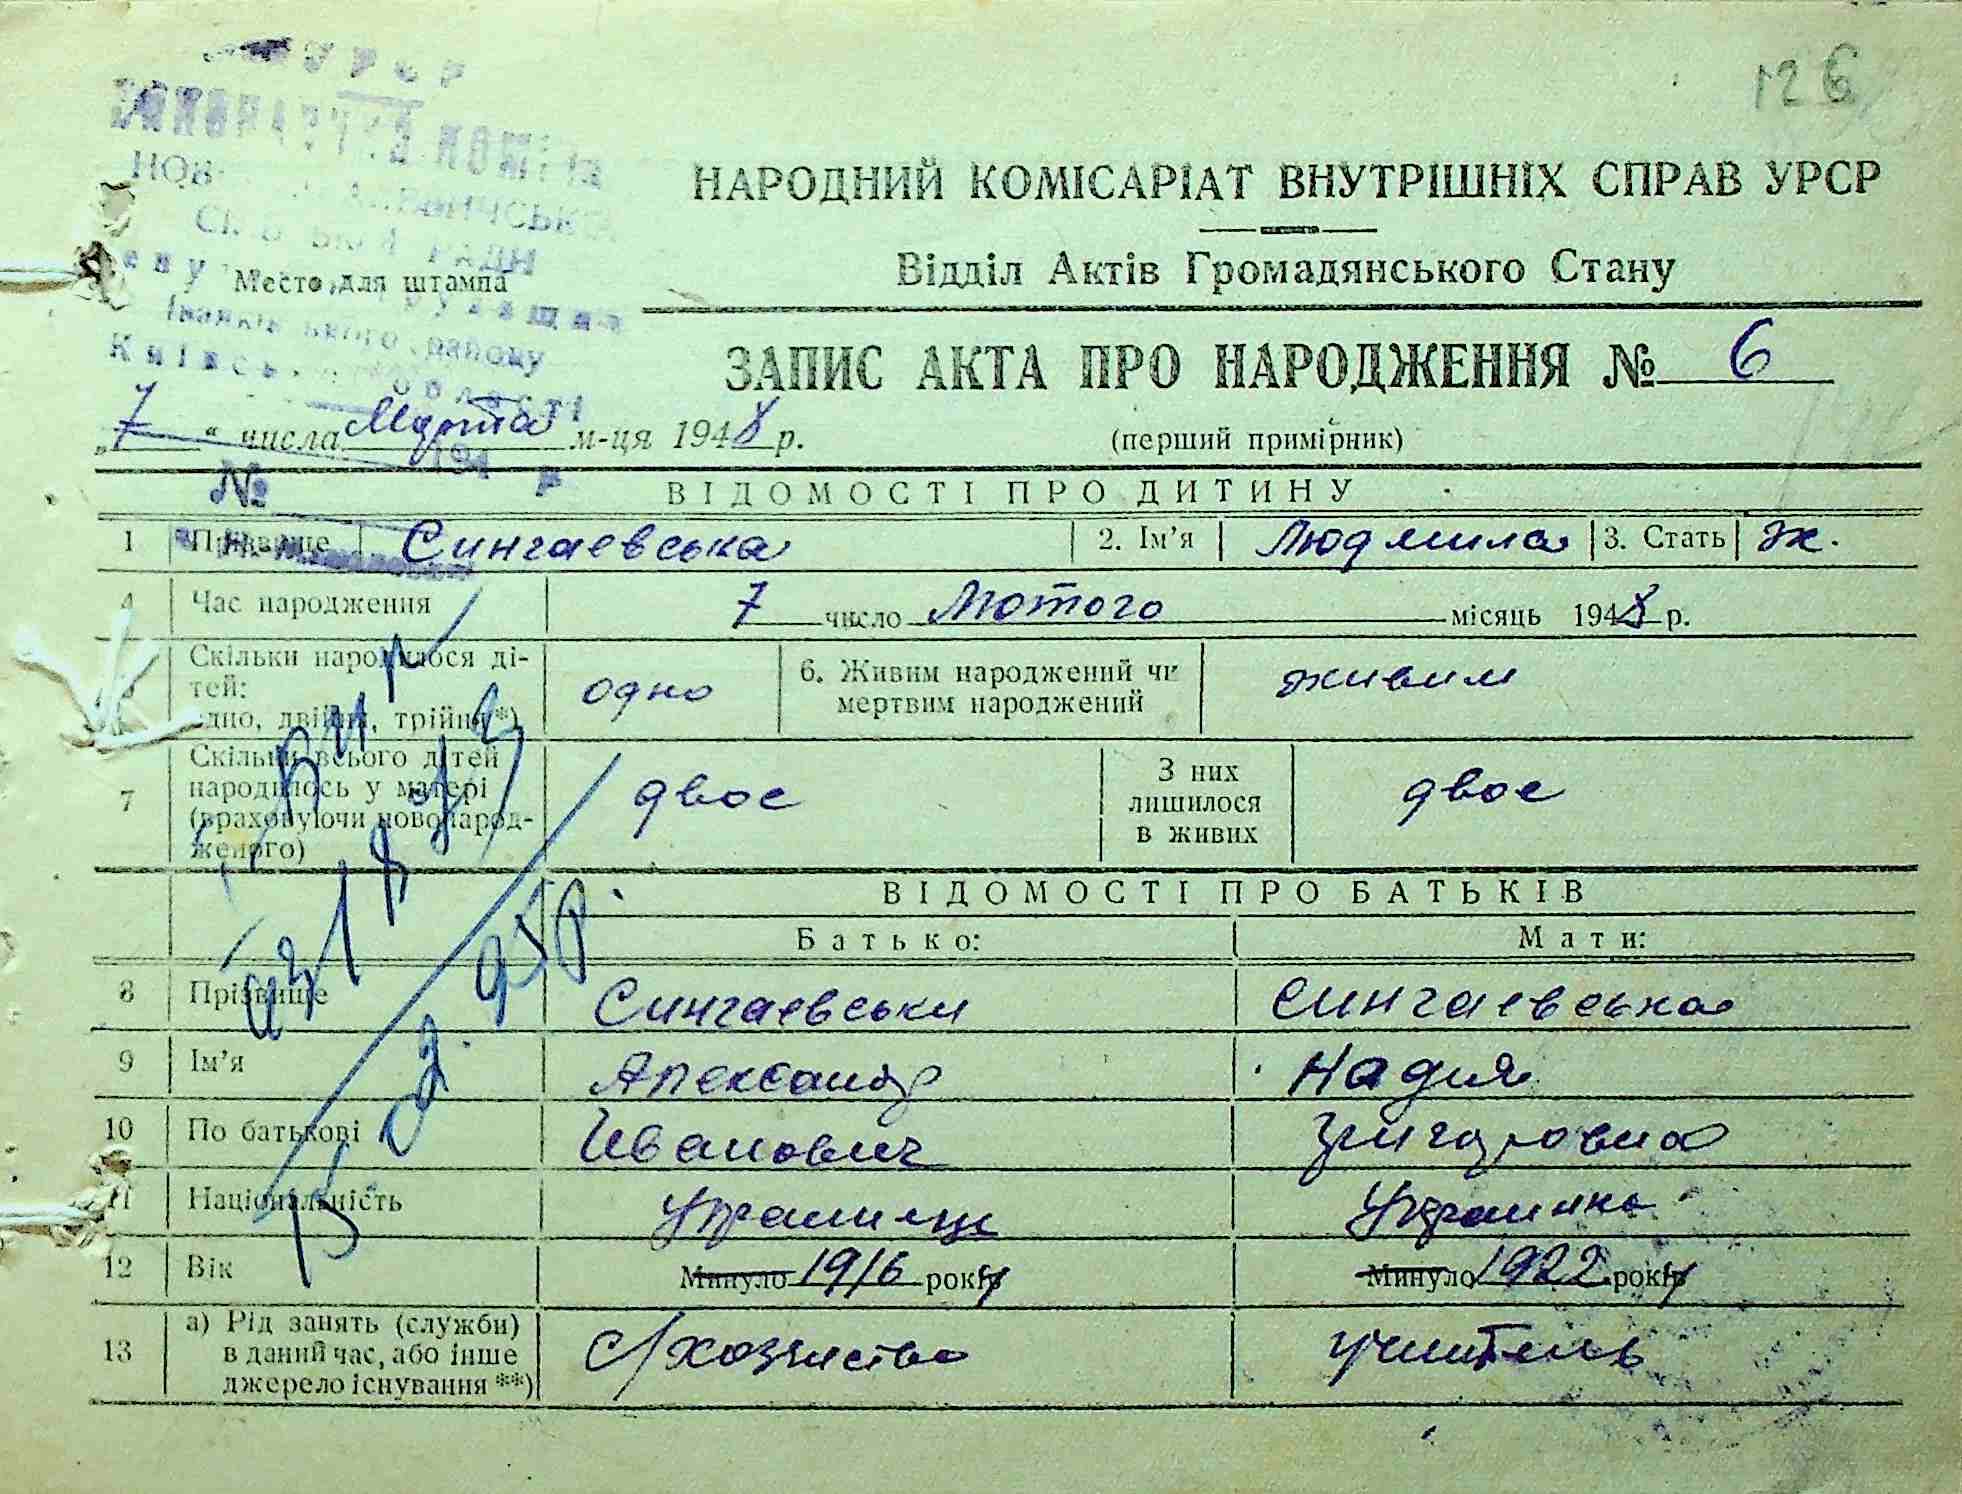 126
УРСР
НАРОДНИЙ КОМІСАРІАТ ВНУТРІШНІХ СПРАВ УРСР
Відділ Актів Громадянського Стану
Место для штампа
району
ЗАПИС АКТА ПРО НАРОДЖЕННЯ № 6
„7“ числа Марта м-ця 1948 р. (перший примірник)
№ 194 р
ВІДОМОСТІ ПРО ДИТИНУ
1 Прізвище Сингаевська 2. Ім’я Людмила 3. Стать ж.
4 Час народження 7 число Лютого місяць 1948 р.
5 Скільки народилося ді- одно 6. Живим народжений чи живим
тей: мертвим народжений
одно, двійня, трійня*)
7 Скільки всього дітей двое З них двое
народилось у матері лишилося
(враховуючи новонарод- в живих
женого)
ВІДОМОСТІ ПРО БАТЬКІВ
Батько: Мати:
8 Прізвище Сингаевськи Сингаевська
9 Ім’я Александр Надия
10 По батькові Иванович Григоровна
11 Національність Украинец Украинка
12 Вік Минуло 1916 року Минуло 1922 року
13 а) Рід занять (служби) с/хозяиство учитель
в даний час, або інше
джерело існування **)